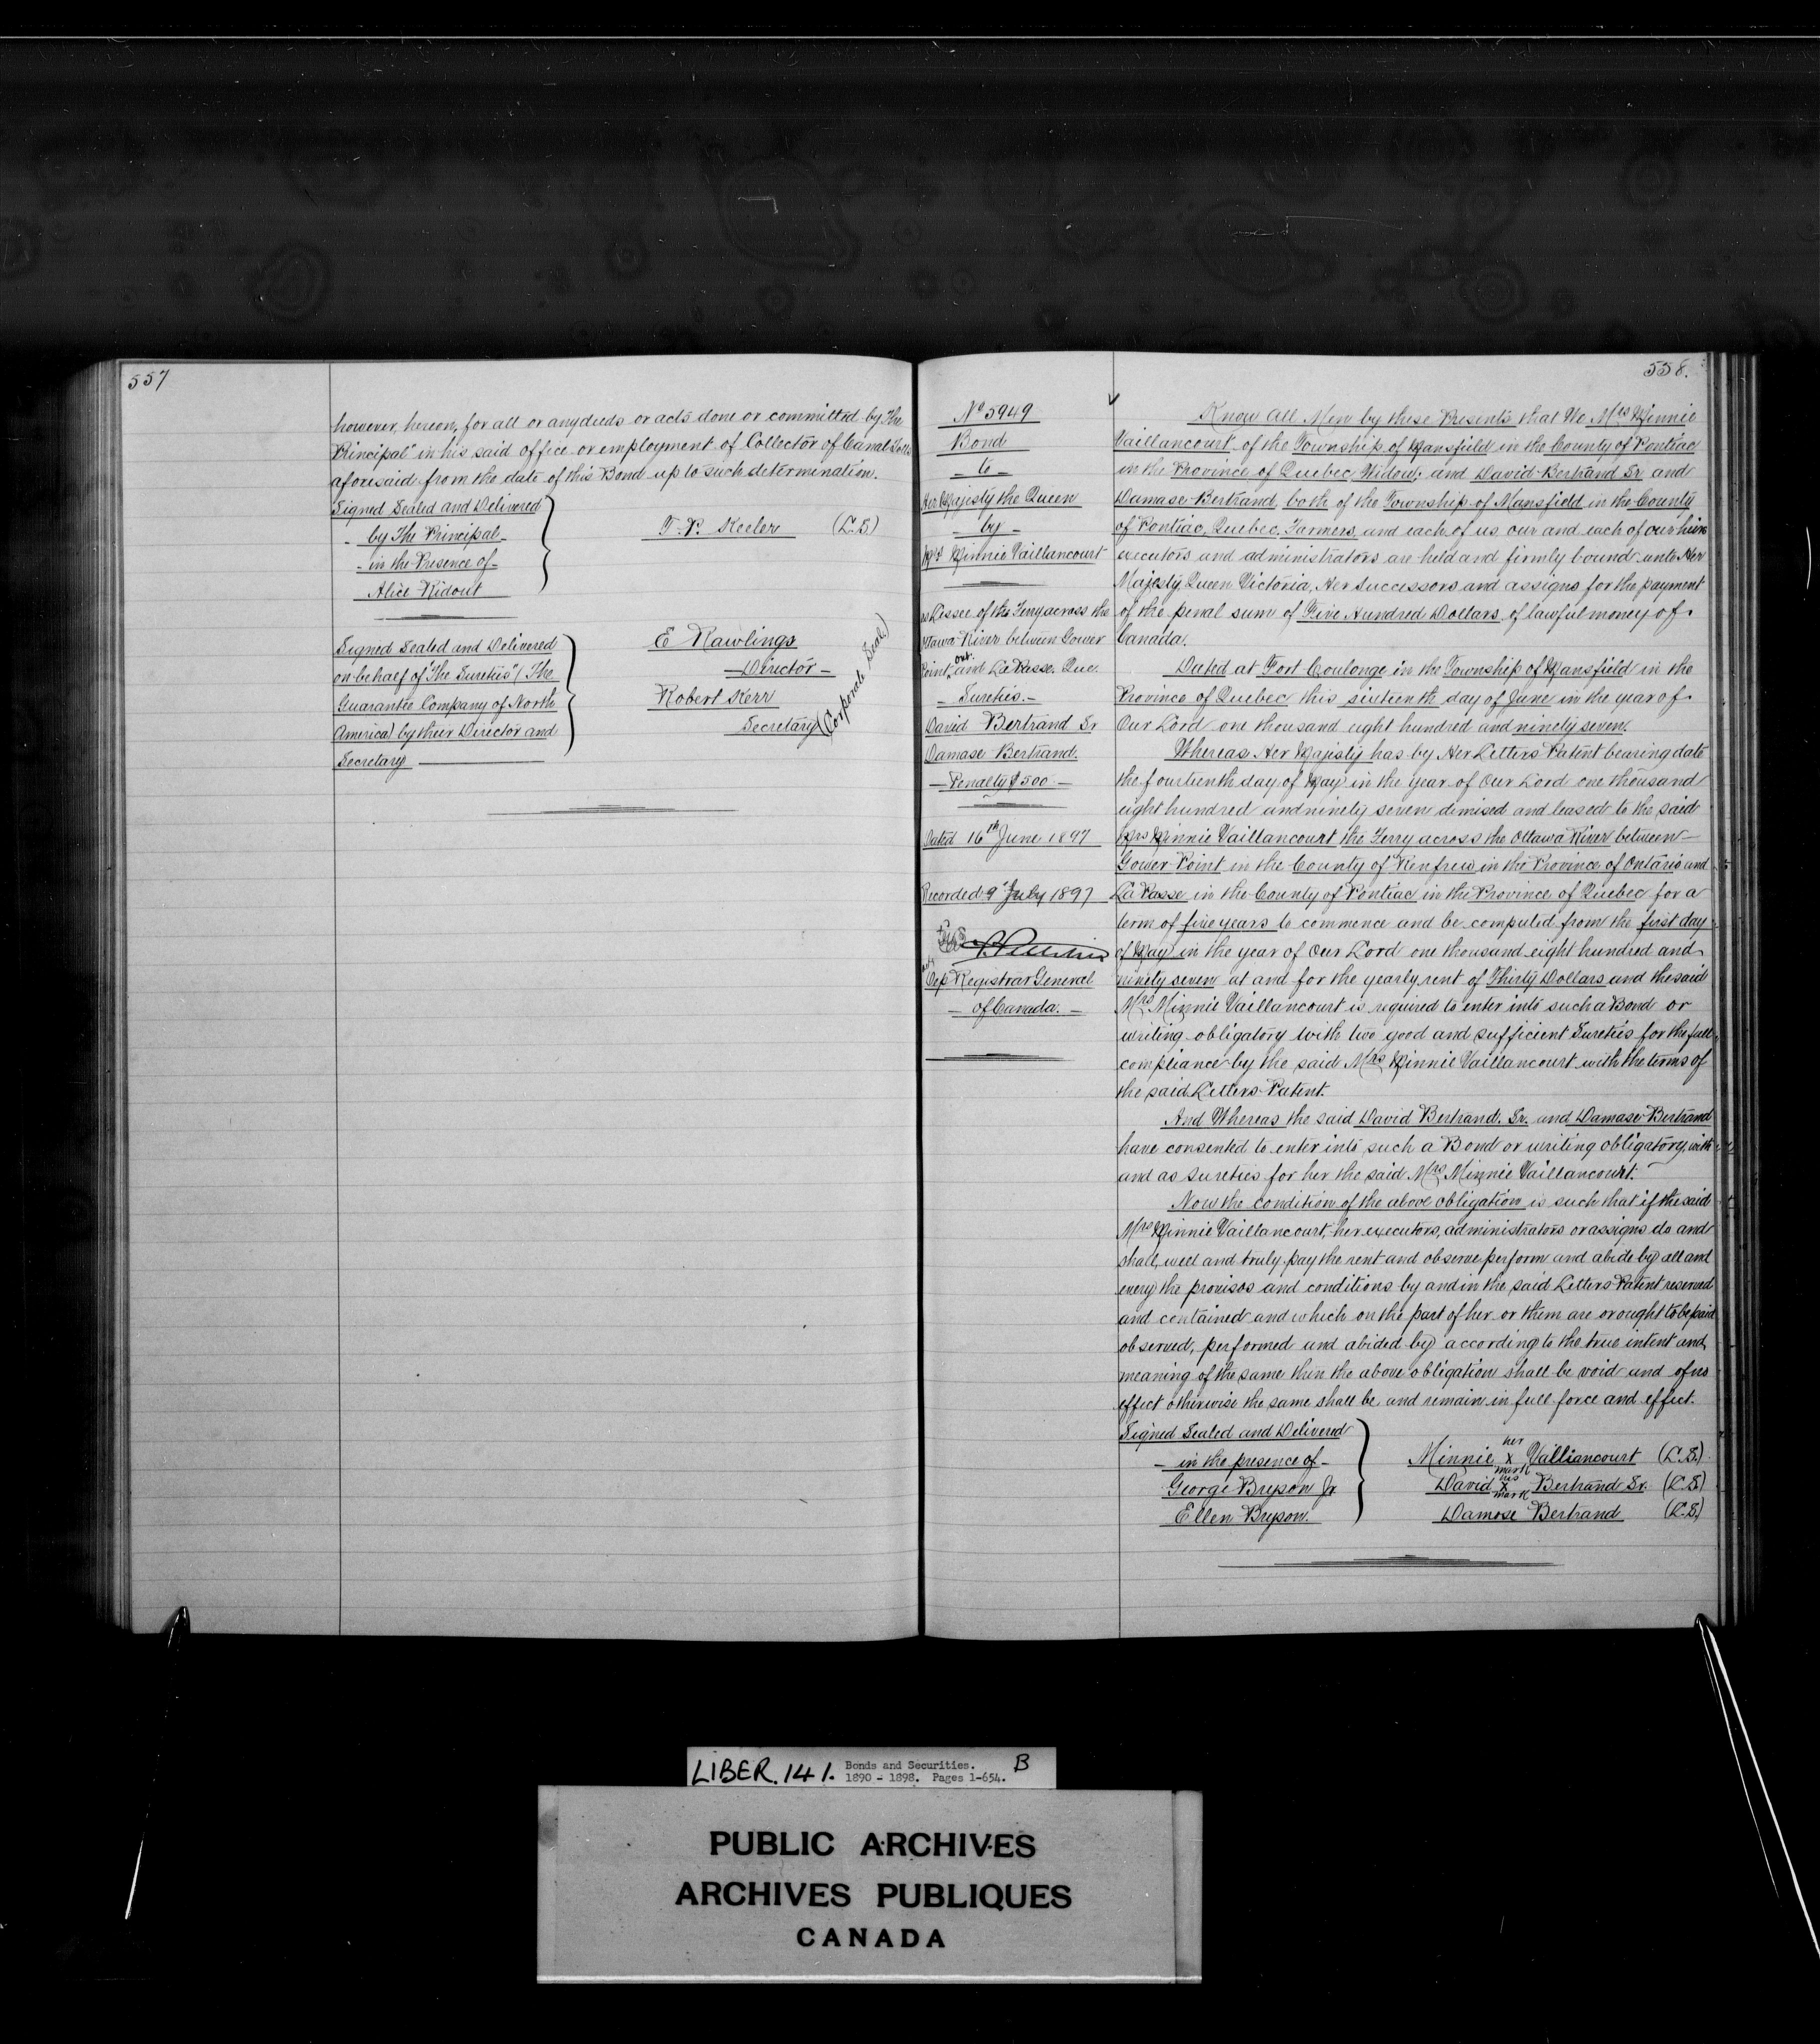 557
however, hereon, for all or any deeds or acts done or committed by "The
Principal" in his said office or employment of Collector of Canal Tolls
aforesaid from the date of this Bond up to such determination.
Signed Sealed and Delivered
- by The Principal -
- in the Presence of -
Alice Ridout
T. P. Keeler (L.S)
Signed Sealed and Delivered
on behalf of "The Sureties" (The
Guarantee Company of North
America) by their Director and
Secretary
E Rawlings
- Director -
Robert Kerr
Secretary
(Corporate Seal)
558.
No 5949
Bond
- to -
Her Majesty the Queen
- by -
Mrs Minnie Vaillancourt
as Lessee of the Ferry across the
Ottawa River between Gower
Point, Ont. and La Passe. Que.
- Sureties. -
David Bertrand Sr
Damase Bertrand.
- Penalty $500 -
Dated 16th June 1897
Recorded 9th July 1897
Dep Registrar General
- of Canada. -
Know All Men by these Presents that We Mrs Minnie
Vaillancourt, of the Township of Mansfield in the County of Pontiac
in the Province of Quebec, Widow; and David Bertrand Sr and
Damase Bertrand, both of the Township of Mansfield in the County
of Pontiac, Quebec, Farmers, and each of us our and each of our heirs
executors and administrators are held and firmly bound unto Her
Majesty Queen Victoria, Her Successors and assigns for the payment
of the penal sum of Five Hundred Dollars of lawful money of
Canada.
Dated at Fort Coulonge in the Township of Mansfield in the
Province of Quebec this sixteenth day of June in the year of
Our Lord one thousand eight hundred and ninety seven.
Whereas Her Majesty has by Her Letters Patent bearing date
the fourteenth day of May in the year of Our Lord one thousand
eight hundred and ninety seven dimised and leased to the said
Mrs Minnie Vaillancourt the Ferry across the Ottawa River between
Gower Point in the County of Renfrew in the Province of Ontario and
La Passe in the County of Pontiac in the Province of Quebec for a
term of five years to commence and be computed from the first day
of May in the year of Our Lord one thousand eight hundred and
ninety seven at and for the yearly rent of Thirty Dollars and the said
Mrs Minnie Vaillancourt is required to enter into such a Bond or
writing obligatory with two good and sufficient Sureties for the full
compliance by the said Mrs Minnie Vaillancourt with the terms of
the said Letters Patent.
And Whereas the said David Bertrand. Sr. and Damase Bertrand
have consented to enter into such a Bond or writing obligatory, with
and as sureties for her the said Mrs Minnie Vaillancourt.
Now the condition of the above obligation is such that if the said
Mrs Minnie Vaillancourt, her executors, administrators or assigns do and
shall, well and truly pay the rent and observe perform and abide by all and
every the provisos and conditions by and in the said Letters Patent reserved
and contained and which on the part of her or them are or ought to be paid
observed, performed and abided by according to the true intent and
meaning of the same then the above obligation shall be void and of no
effect otherwise the same shall be and remain in full force and effect.
Signed Sealed and Delivered
- in the presence of -
George Bryson Jr
Ellen Bryson.
Minnie her x mark Valliancourt (L.S.)
David his x mark Bertrand Sr. (L.S)
Damase Bertrand (L.S)
LIBER. 141. Bonds and Securities. B
1890 - 1898. Pages 1-654.
PUBLIC ARCHIVES
ARCHIVES PUBLIQUES
CANADA